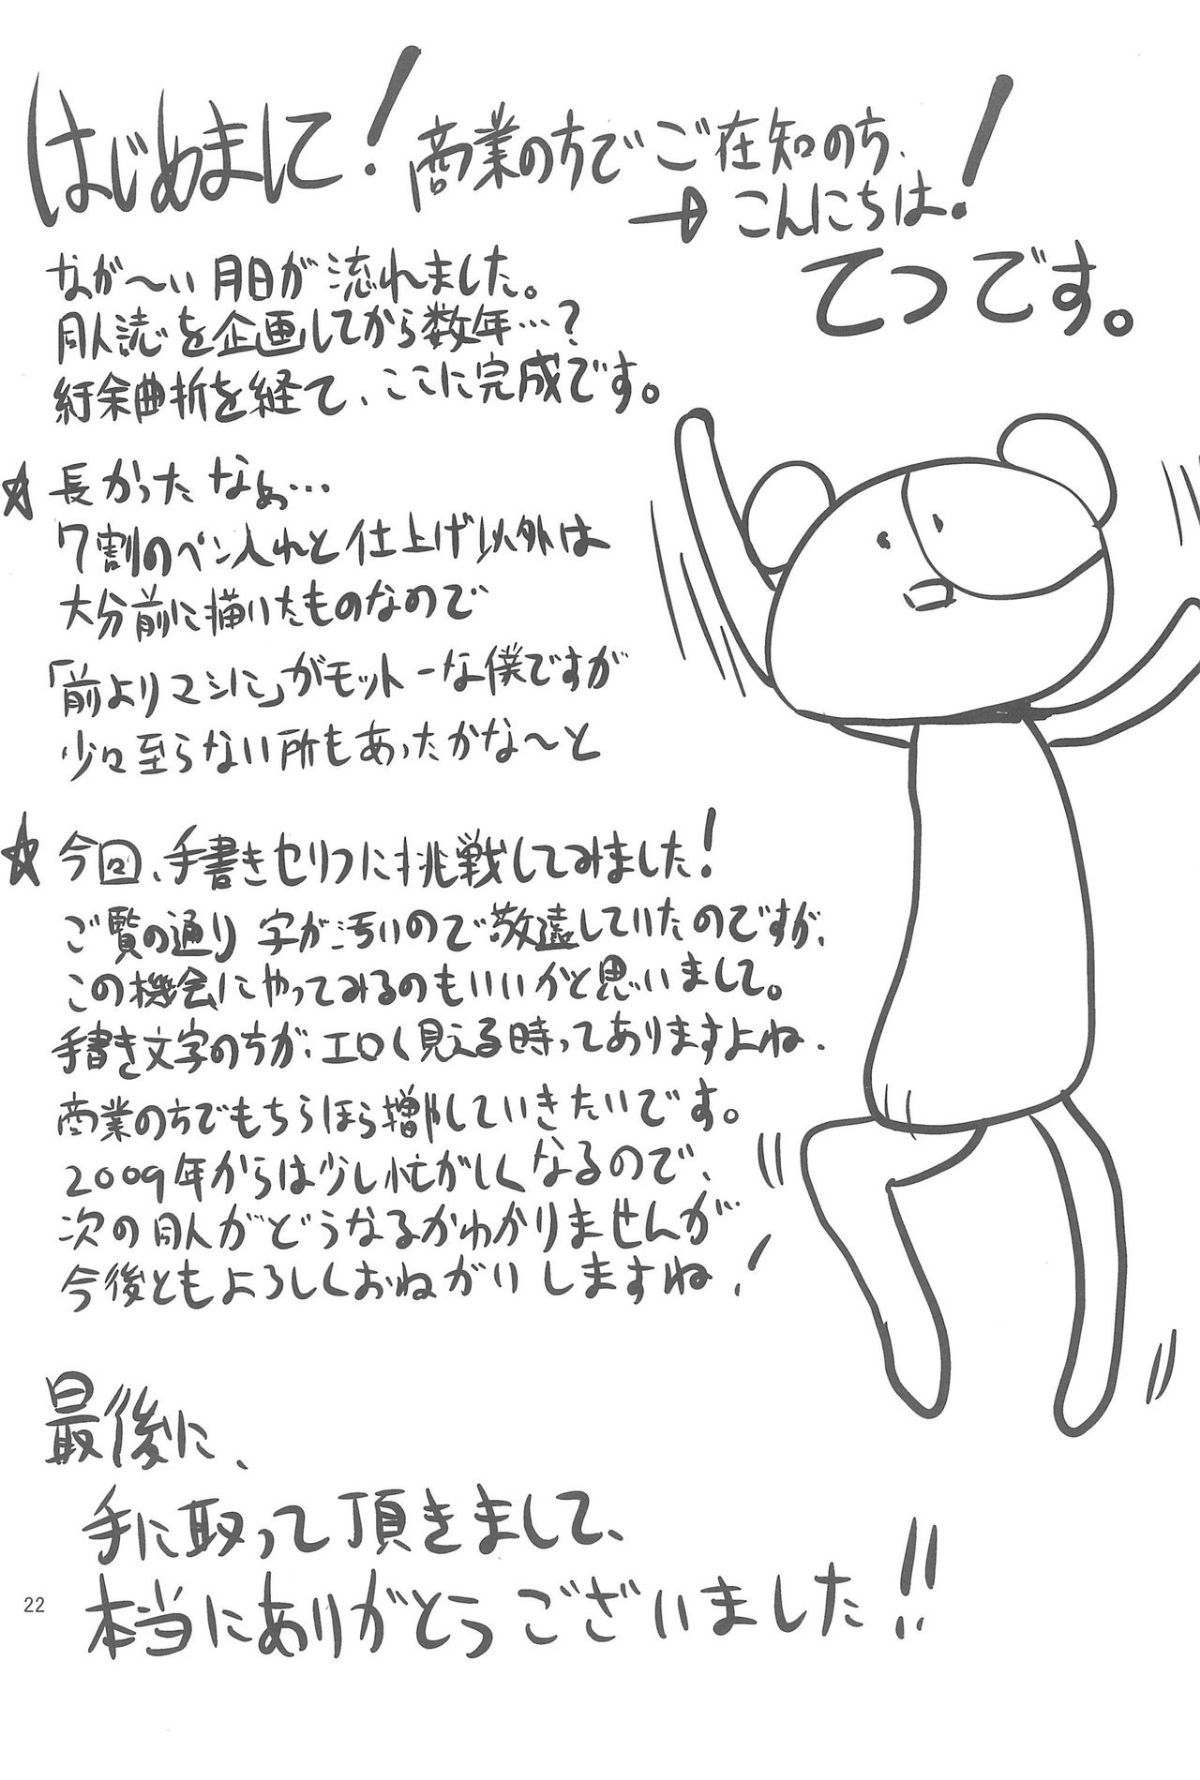 はじめまして!
商業の方でご存知の方、
→こんにちは!
てつです。
なが〜い月日が流れました。
同人誌を企画してから数年…?
紆余曲折を経て、ここに完成です。
☆長かったなぁ…
7割のペン入れと仕上げ以外は
大分前に描いたものなので
「前よりマシに」がモットーな僕ですが
少々至らない所もあったかな〜と
☆今回、手書きセリフに挑戦してみました!
ご覧の通り字が汚いので敬遠していたのですが、
この機会にやってみるのもいいかと思いまして。
手書き文字の方が、エロく見える時ってありますよね、
商業の方でもちらほら増やしていきたいです。
2009年からは少し忙がしくなるので、
次の同人がどうなるかわかりませんが
今後ともよろしくおねがいしますね!
最後に、
手に取って頂きまして、
本当にありがとうございました!!
22